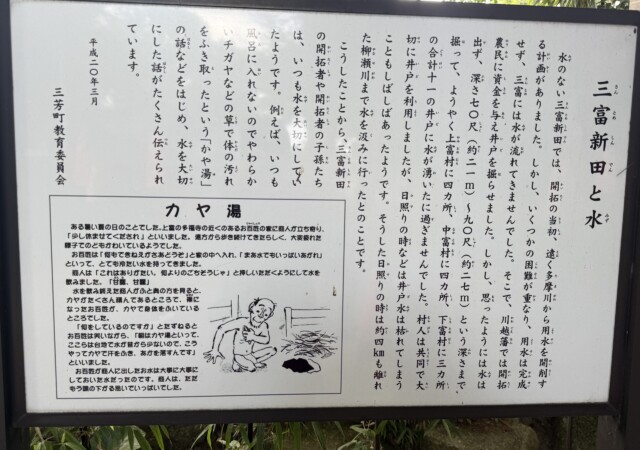 三富新田と水
水のない三富新田では、開拓の当初、遠く多摩川から用水を開削す
る計画がありました。しかし、いくつかの困難が重なり、用水は完成
せず、三富には水が流れてきませんでした。そこで、川越藩では開拓
農民に資金を与え井戸を掘らせました。しかし、思ったようには水は
出ず、深さ七〇尺(約二一m)~九〇尺(約二七m)という深さまで、
掘って、ようやく上富村に四カ所、中富村に四カ所、下富村に三カ所
の合計十一の井戸に水が湧いたに過ぎませんでした。村人は共同で大
切に井戸を利用しましたが、日照りの時などは井戸水は枯れてしまう
こともしばしばあったようです。そうした日照りの時は約四kmも離れ
た柳瀬川まで水を汲みに行ったとのことです。
こうしたことから、三富新田
の開拓者や開拓者の子孫たち
は、いつも水を大切にしてい
たようです。例えば、いつも
風呂に入れないのでやわらか
いチガヤなどの草で体の汚れ
をふき取ったという「かや湯」
の話などをはじめ、水を大切
にした話がたくさん伝えられ
ています。
平成二〇年三月
三芳町教育委員会
カヤ湯
ある暑い夏の日のことでした。上富の多福寺の近くのあるお百姓の家に商人が立ち寄り、
「少し休ませてくだされ」といいました。遠方から歩き続けてきたらしく、大変疲れた
様子でのどもかわいているようでした。
お百姓は「何もできねえがさああどうぞ」と家の中へ入れ、「まあ水でもいっぱいあがれ」
といって、とても冷たい水を持ってきました。
商人は「これはありがたい、何よりのごちそうじゃ」と押しいただくようにして水を
飲みました。「甘露、甘露」
水を飲み終えた商人がふと奥の方を見ると、
カヤがたくさん積んであるところで、裸に
なったお百姓が、カヤで身体をふいている
ところでした。
「何をしているのですか」とたずねると
お百姓は笑いながら、「細はカヤ湯といって、
ここらは台地で水が昔から少ないので、こう
やってカヤで汗をふき、あかを落すんです」
といいました。
お百姓が商人に出したお水は大事に大事に
しておいた水だったのです。商人は、ただ
もう頭の下がる思いでいっぱいでした。